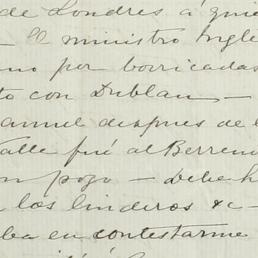 de Londres á quie
– El ministro Ingle
no por borricadas
to con Dublan –
anuel despues de l
alle fué al Berren
n pozo – debe h
los linderos &c –
ba en contestarme